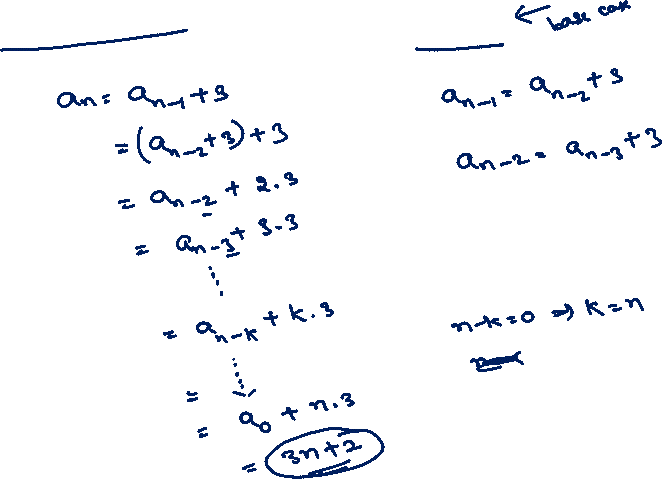 ← base case
aₙ = aₙ₋₁ + 3
= (aₙ₋₂ + 3) + 3
= aₙ₋₂ + 2.3
= aₙ₋₃ + 3.3
= aₙ₋ₖ + k.3
=
= a₀ + n.3
= 3n+2
aₙ₋₁ = aₙ₋₂ + 3
aₙ₋₂ = aₙ₋₃ + 3
n-k=0 ⇒ k=n